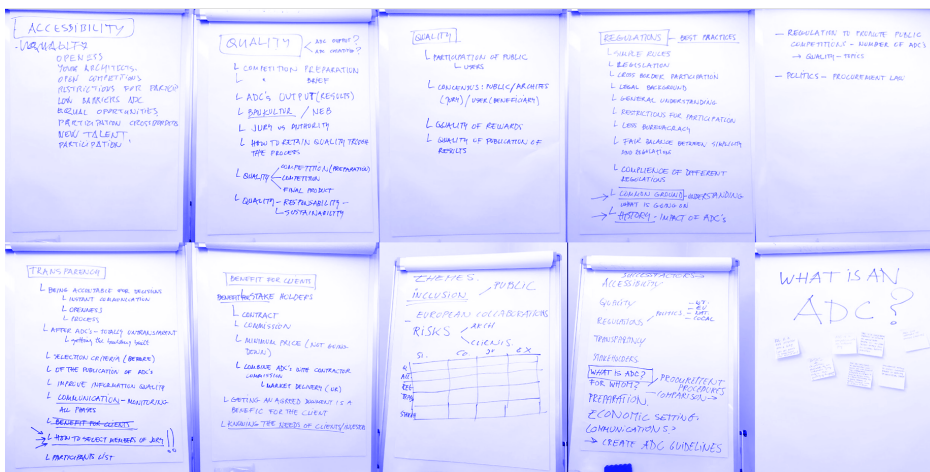 ACCESSIBILITY
OPENESS
YOUNG ARCHITECTS.
OPEN COMPETITIONS
RESTRICTIONS FOR PARTICIP
LOW BARRIERS ADC
EQUAL OPORTUNITIES
PARTICIPATION CROSSBORDERS
NEW TALENT
PARTICIPATION
QUALITY
ADC OUTPUT?
ADC CREATING?
COMPETITION PREPARATION
" BRIEF
ADC'S OUTPUT (RESULTS)
BAUKULTUR / NEB
JURY VS AUTHORITY
HOW TO RETAIN QUALITY TROUGH
THE PROCESS
QUALITY
COMPETITION (PREPARATION)
COMPETITION
FINAL PRODUCT
QUALITY - RESPONSABILITY -
SUSTAINABILITY
QUALITY
PARTICIPATION OF PUBLIC
USERS
CONCENSUS: PUBLIC/ARCHITES
(JURY) / USER/BENEFICIARY)
QUALITY OF REWARDS
QUALITY OF PUBLICATION OF
RESULTS
REGULATIONS - BEST PRACTICES
SIMPLE RULES
REGISLATION
CROSS BORDER PARTICIPATION
LEGAL BACKGROUND
GENERAL UNDERSTANDING
RESTRICTIONS FOR PARTICIPATION
LESS BUROUCRACY
FAIR BALANCE BETWEEN SIMPLICITY
AND REGULATION
COMPLIENCE OF DIFFERENT
REGULATIONS
→ COMMON GROUND - UNDERSTANDING
WHAT IS GOING ON
→ HISTORY - IMPACT OF ADC'S
- REGULATION TO PROMOTE PUBLIC
COMPETITIONS - NUMBER OF ADC'S
→ QUALITY - TOPICS
- POLITICS - PROCUREMENT LAW
TRANSPARENCY
BEING ACCEPTABLE FOR DECISIONS
INSTANT COMMUNICATION
OPENNESS
PROCESS
AFTER ADC'S - TOTALLY UNTRANSPARENT
getting the building built
SELECTION CRITERIA (BEFORE)
OF THE PUBLICATION OF ADC'S
IMPROVE INFORMATION QUALITY
COMMUNICATION - MONITORING
ALL PHASES
BENEFIT FOR CLIENTS
→ HOW TO SELECT MEMBERS OF JURY !!
PARTICIPANTS LIST
BENEFIT FOR CLIENTS
BENEFIT FOR STAKE HOLDERS
CONTRACT
COMMISSION
MINIMUM PRICE (NOT BEING
DOWN)
COMBINE ADC'S WITH CONTRACTOR
COMMISSION
MARKET DELIVERY (UK)
GETTING AN AGREED DOCUMENT IS A
BENEFIC FOR THE CLIENT
KNOWING THE NEEDS OF CLIENTS/INVESTOR
THEMES.
INCLUSION
PUBLIC
- EUROPEAN COLLABORATIONS
RISKS
ARCH
CLIENTS.
SUCCESS FACTORS
ACCESSIBILITY
QUALITY
EU
NAT.
LOCAL
REGULATIONS
POLITICS
TRANSPARENCY
STAKEHOLDERS
WHAT IS ADC?
FOR WHOM?
PROCUREMENT
PROCEDURES
COMPARISON →
PREPARATION.
ECONOMIC SETTING.
COMMUNICATIONS
→ CREATE ADC GUIDELINES
WHAT IS AN
ADC?